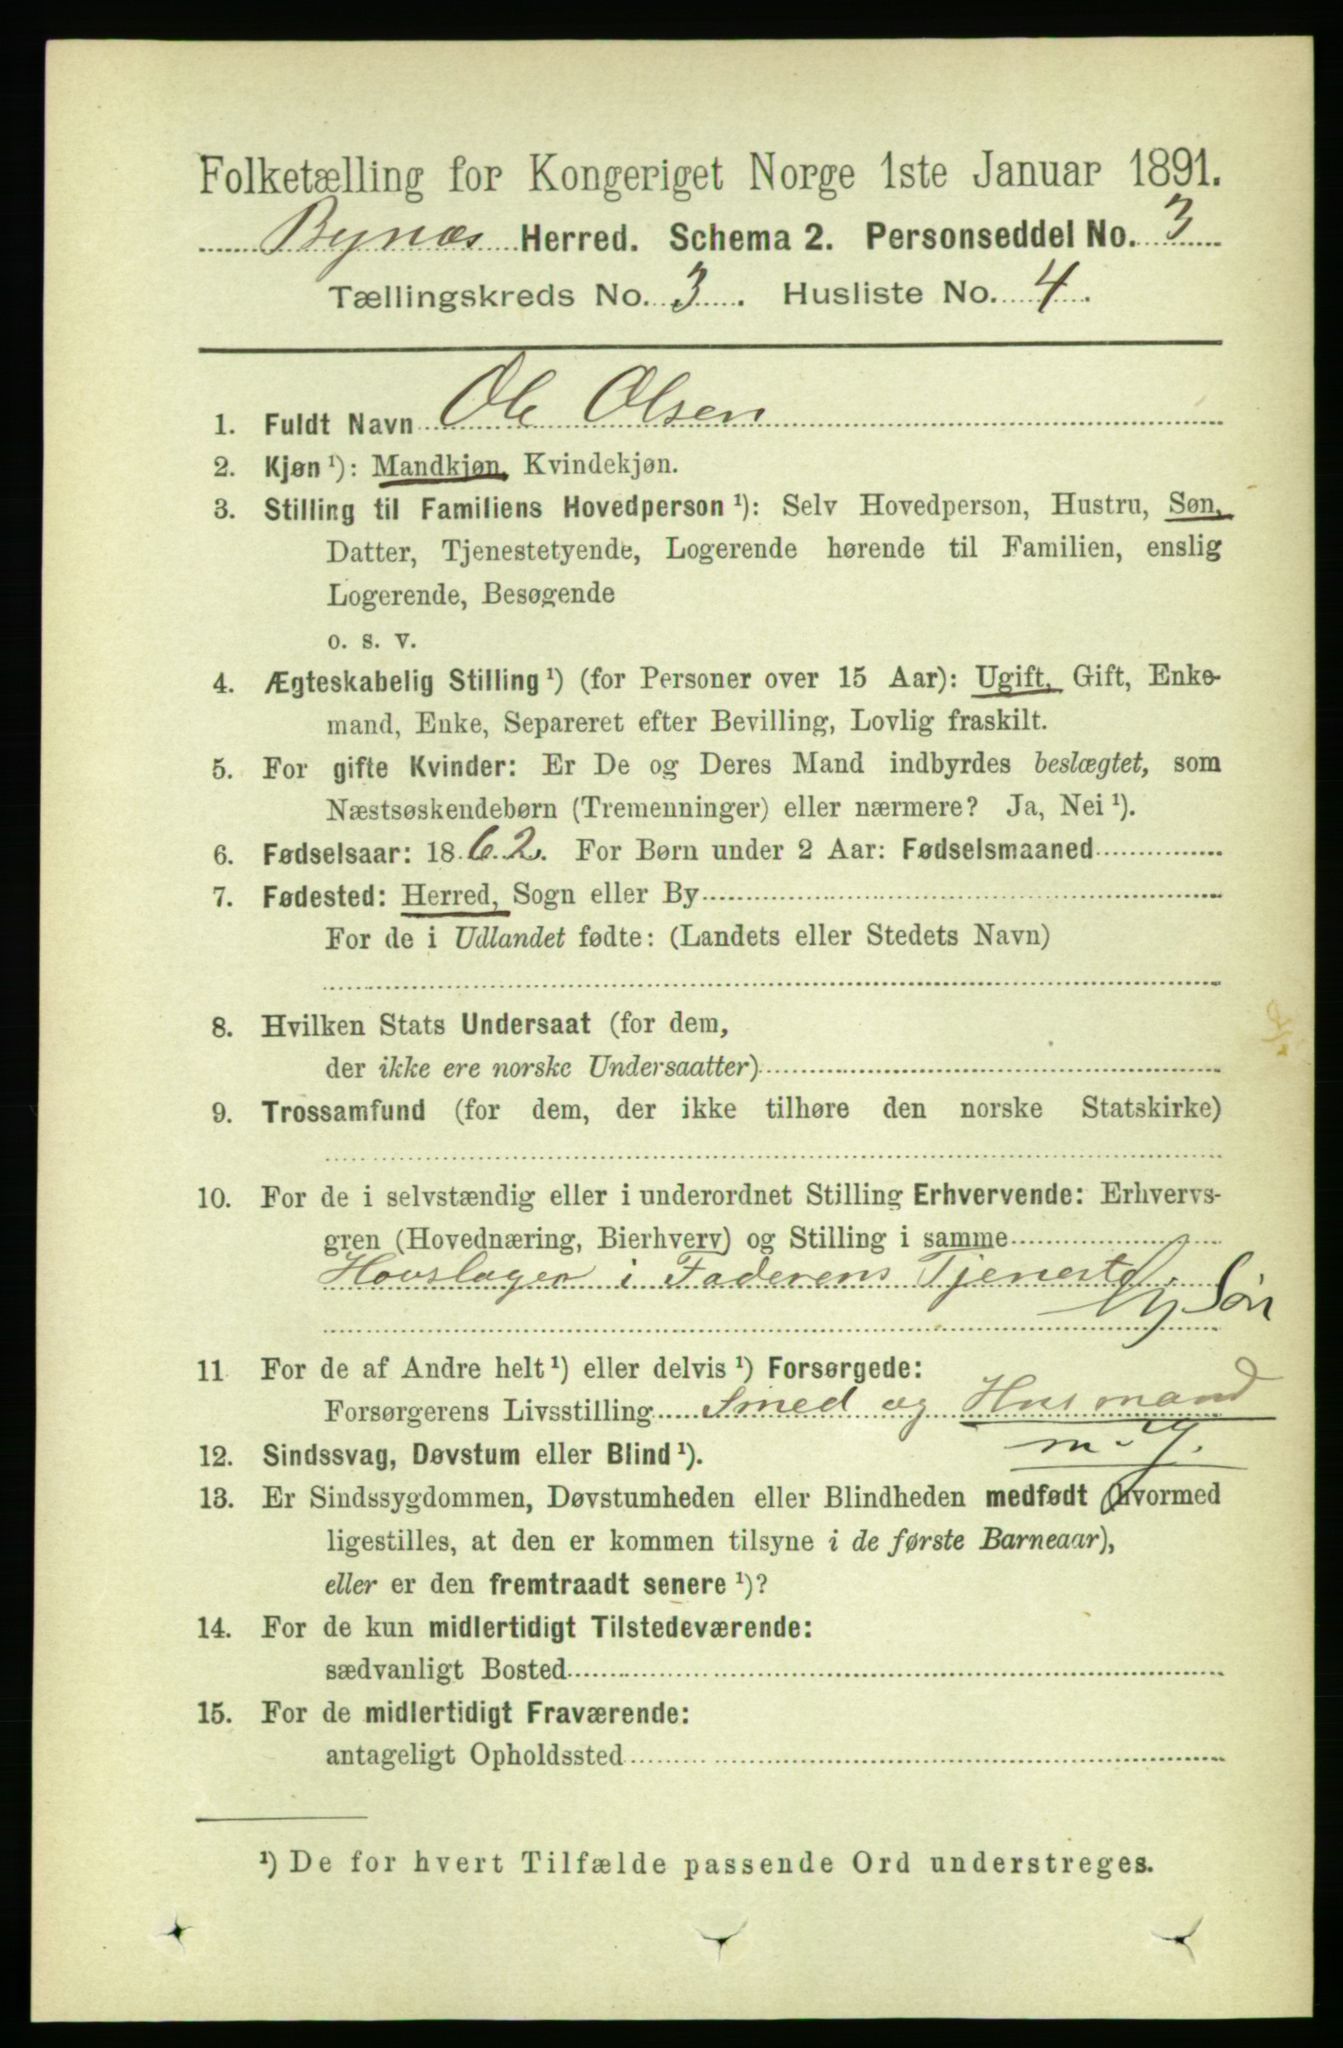 Folketælling for Kongeriget Norge 1ste Januar 1891.
Bynæs Herred. Schema 2. Personseddel No. 3
Tællingskreds No. 3. Husliste No. 4.
1. Fuldt Navn Ole Olsen
2. Kjøn ¹): Mandkjøn, Kvindekjøn.
3. Stilling til Familiens Hovedperson ¹): Selv Hovedperson, Hustru, Søn,
Datter, Tjenestetyende, Logerende hørende til Familien, enslig
Logerende, Besøgende
o. s. v.
4. Ægteskabelig Stilling ¹) (for Personer over 15 Aar): Ugift, Gift, Enke-
mand, Enke, Separeret efter Bevilling, Lovlig fraskilt.
5. For gifte Kvinder: Er De og Deres Mand indbyrdes beslægtet, som
Næstsøskendebørn (Tremenninger) eller nærmere? Ja, Nei ¹).
6. Fødselsaar: 1862. For Børn under 2 Aar: Fødselsmaaned
7. Fødested: Herred, Sogn eller By
For de i Udlandet fødte: (Landets eller Stedets Navn)
8. Hvilken Stats Undersaat (for dem,
der ikke ere norske Undersaatter)
9. Trossamfund (for dem, der ikke tilhøre den norske Statskirke)
10. For de i selvstændig eller i underordnet Stilling Erhvervende: Erhvervs-
gren (Hovednæring, Bierhverv) og Stilling i samme
Hovslager i Faderens Tjeneste
Søn
11 For de af Andre helt ¹) eller delvis ¹) Forsørgede:
Forsørgerens Livsstilling Smed og Husmand
m. J.
12. Sindssvag, Døvstum eller Blind ¹).
13. Er Sindssygdommen, Døvstumheden eller Blindheden medfødt (hvormed
ligestilles, at den er kommen tilsyne i de første Barneaar),
eller er den fremtraadt senere ¹)?
14. For de kun midlertidigt Tilstedeværende:
sædvanligt Bosted
15. For de midlertidigt Fraværende:
antageligt Opholdssted
¹) De for hvert Tilfælde passende Ord understreges.